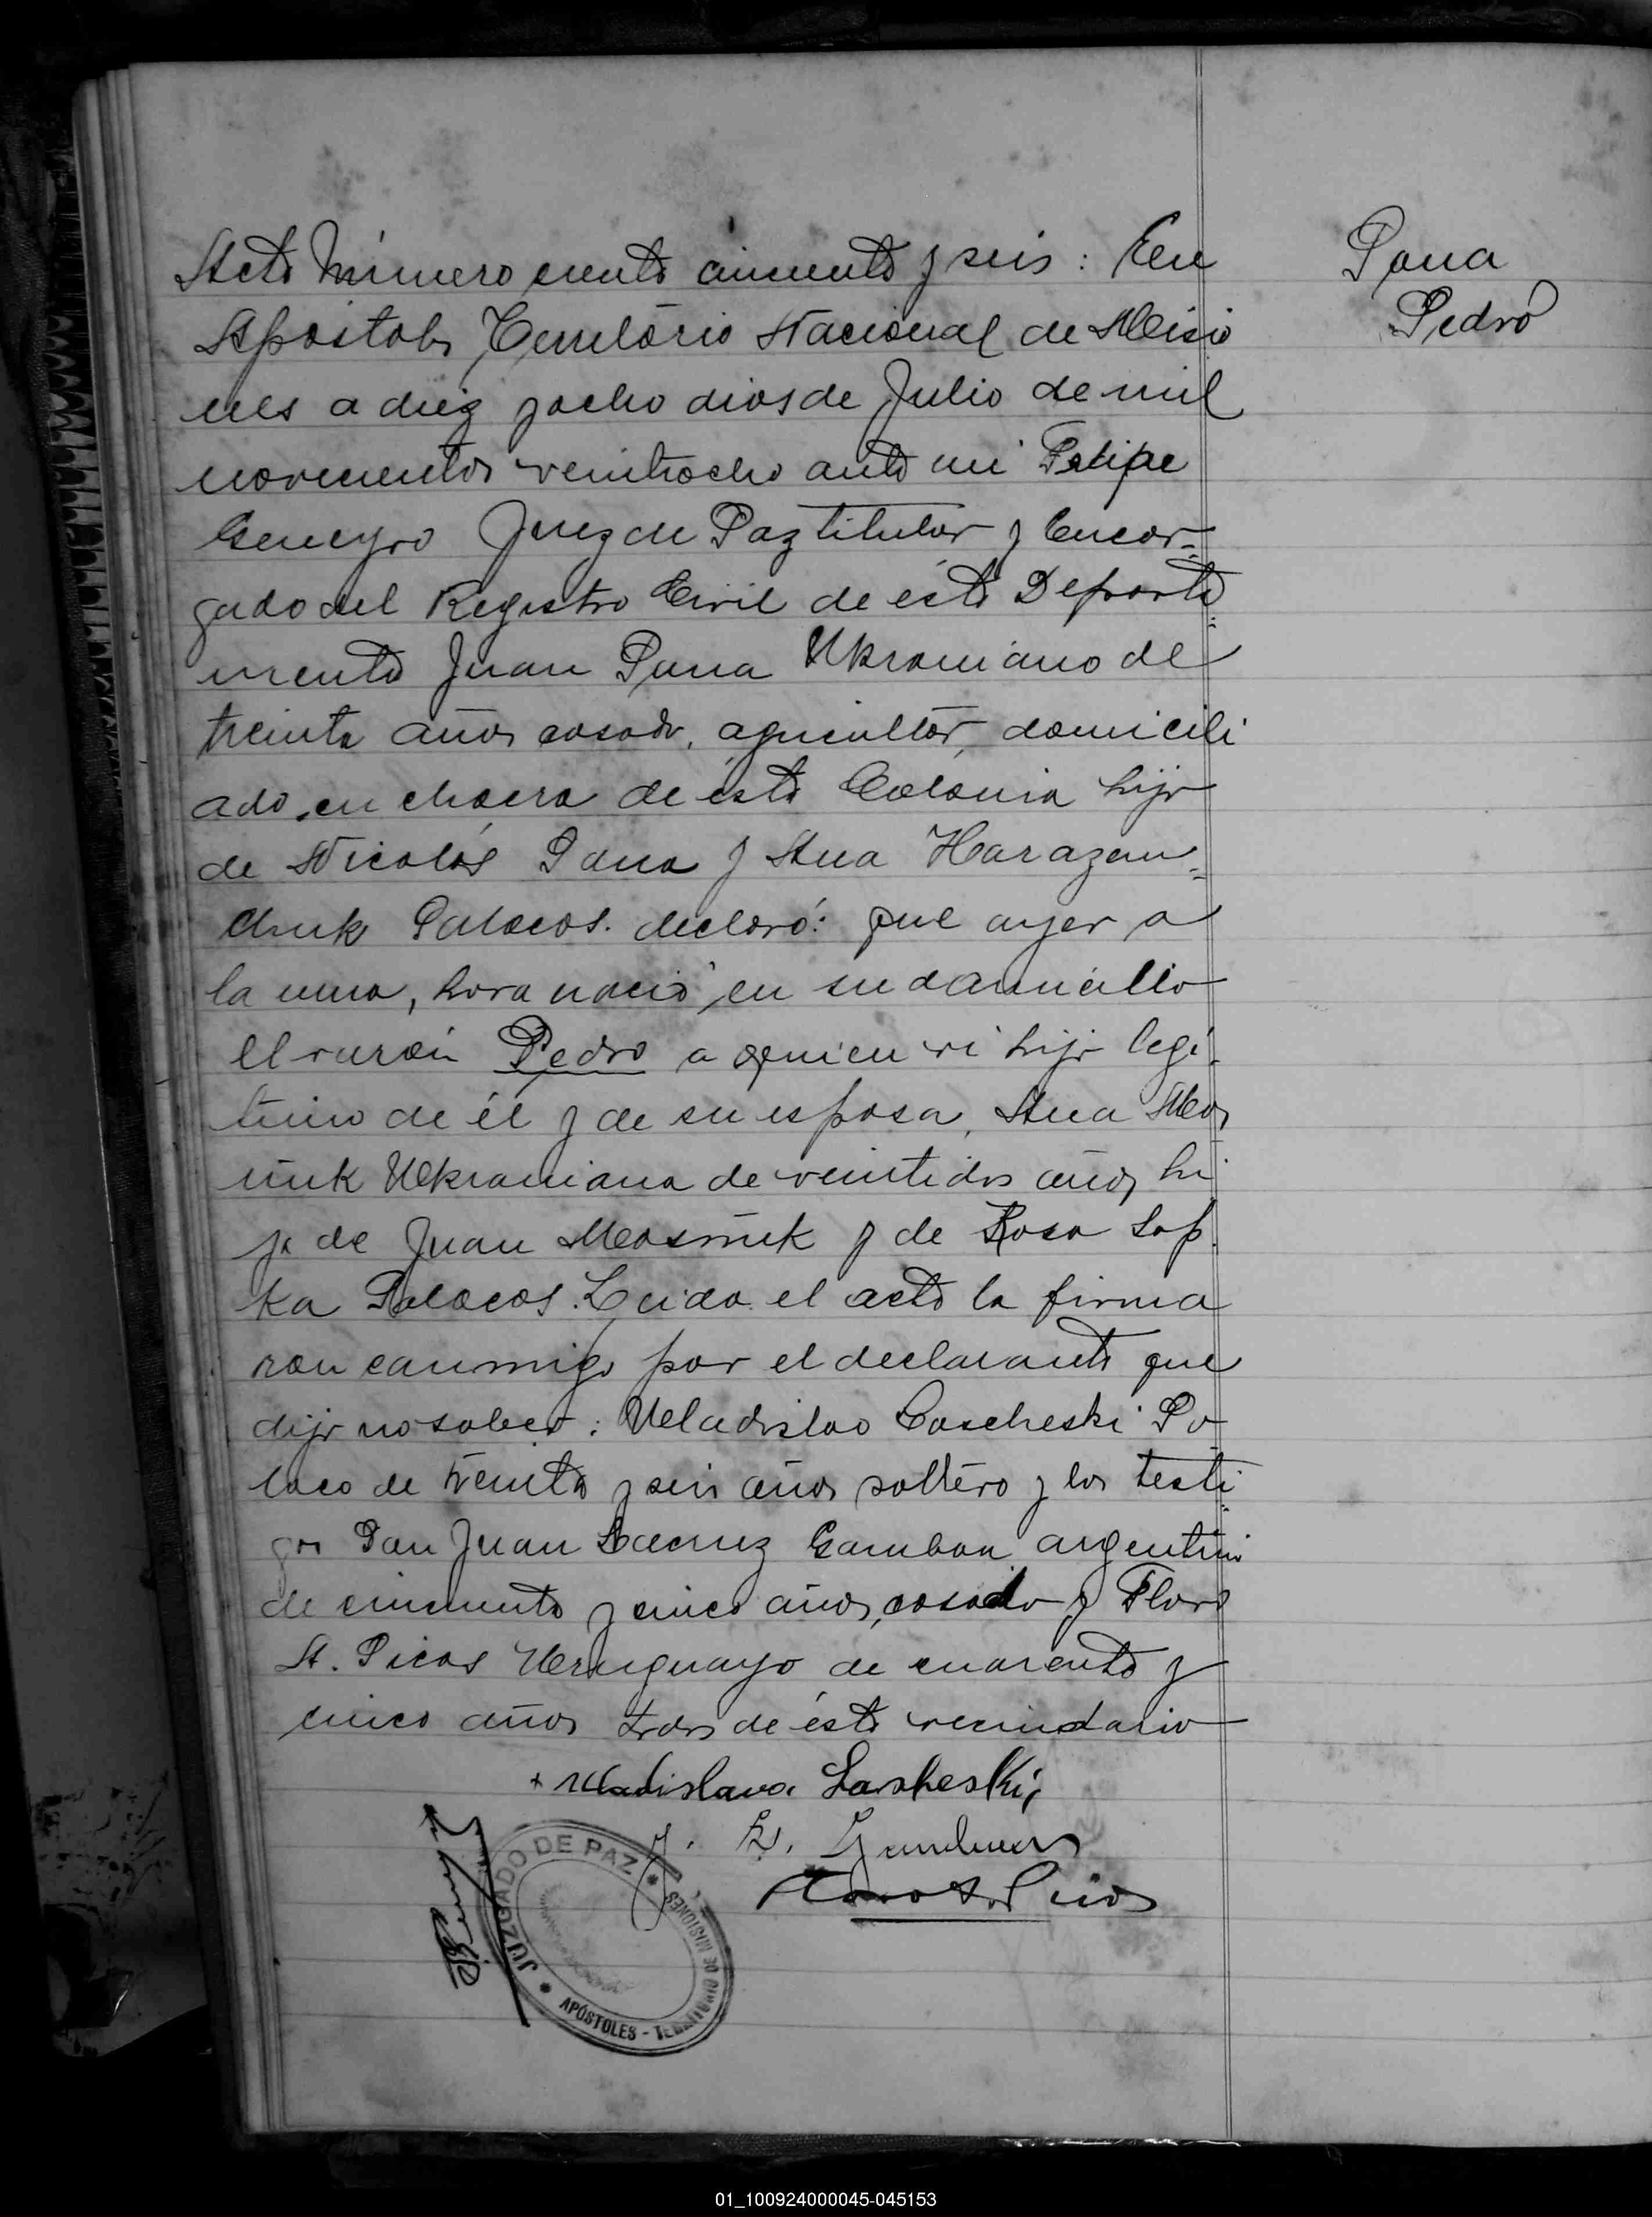 Acta Número ciento cincuenta y seis: En
Apóstoles Territorio Nacional de Misio
nes a diez y ocho dias de Julio de mil
novecientos veintiocho ante mi Felipe
Geneyro Juez de Paz titular y Encar=
gado del Registro Civil de éste Departa=
mento Juan Pana Ukraniano de
treinta años casado, agricultor, domicili
ado, en chacra de ésta Colonia hijo
de Nicolás Pana y Ana Harazem=
chuk Polacos. declaró: que ayer a
la una, hora nació en su domicilio
el varón Pedro a quien vi hijo legí-
timo de él y de su esposa, Ana Mos
niuk Ukraniana de veintidos años, hi
ja de Juan Mosniuk y de Rosa Sop
ka Polacos. Leida el acta la firma
ron conmigo por el declarante que
dijo no saber: Uladislao Lascheski Po
laco de treinta y seis años soltero y los testi
gos Don Juan Lacruz Gamboa argentino
de cincuenta y cinco años, casado y Floro
A. Picos Uruguayo de cuarenta y
cinco años tods de éste vecindario
+ Uladislava Lasheski
J. L. Gamboa
Floro A. Picos
JUZGADO DE PAZ
APÓSTOLES - TERRITORIO DE MISIONES
Pana
Pedro
01_100924000045-045153